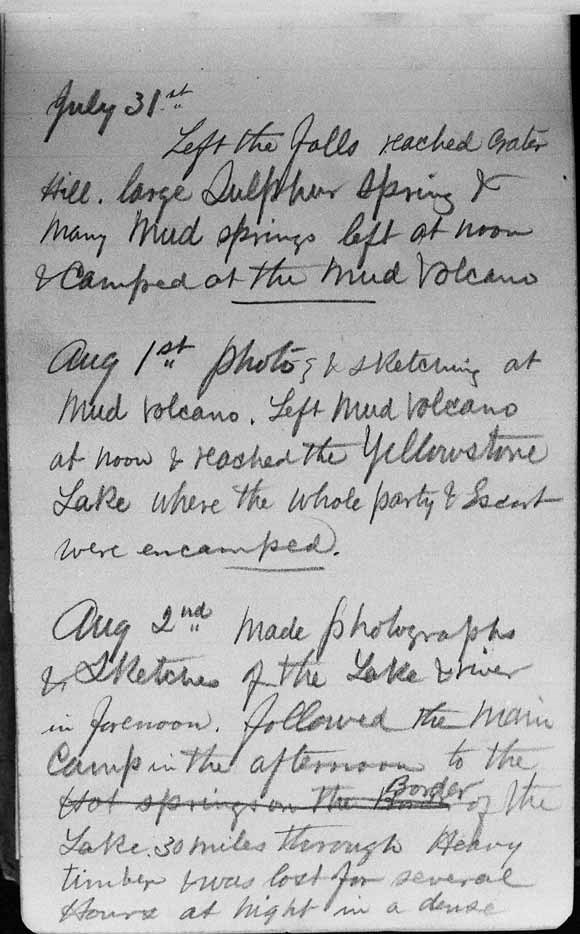 July 31st
Left the falls reached Crater
Hill. large Sulphur Spring &
Many Mud springs left at noon
& Camped at the Mud Volcano
Aug 1st photog & sketching at
Mud Volcano. Left Mud Volcano
at noon & reached the Yellowstone
Lake where the whole party & Escort
were encamped.
Aug 2nd Made photographs
& Sketches of the Lake & river
in forenoon. followed the Main
Camp in the afternoon to the
Hot springs on the Border of the
Lake. 30 miles through Heavy
timber & was lost for several
Hours at night in a dense